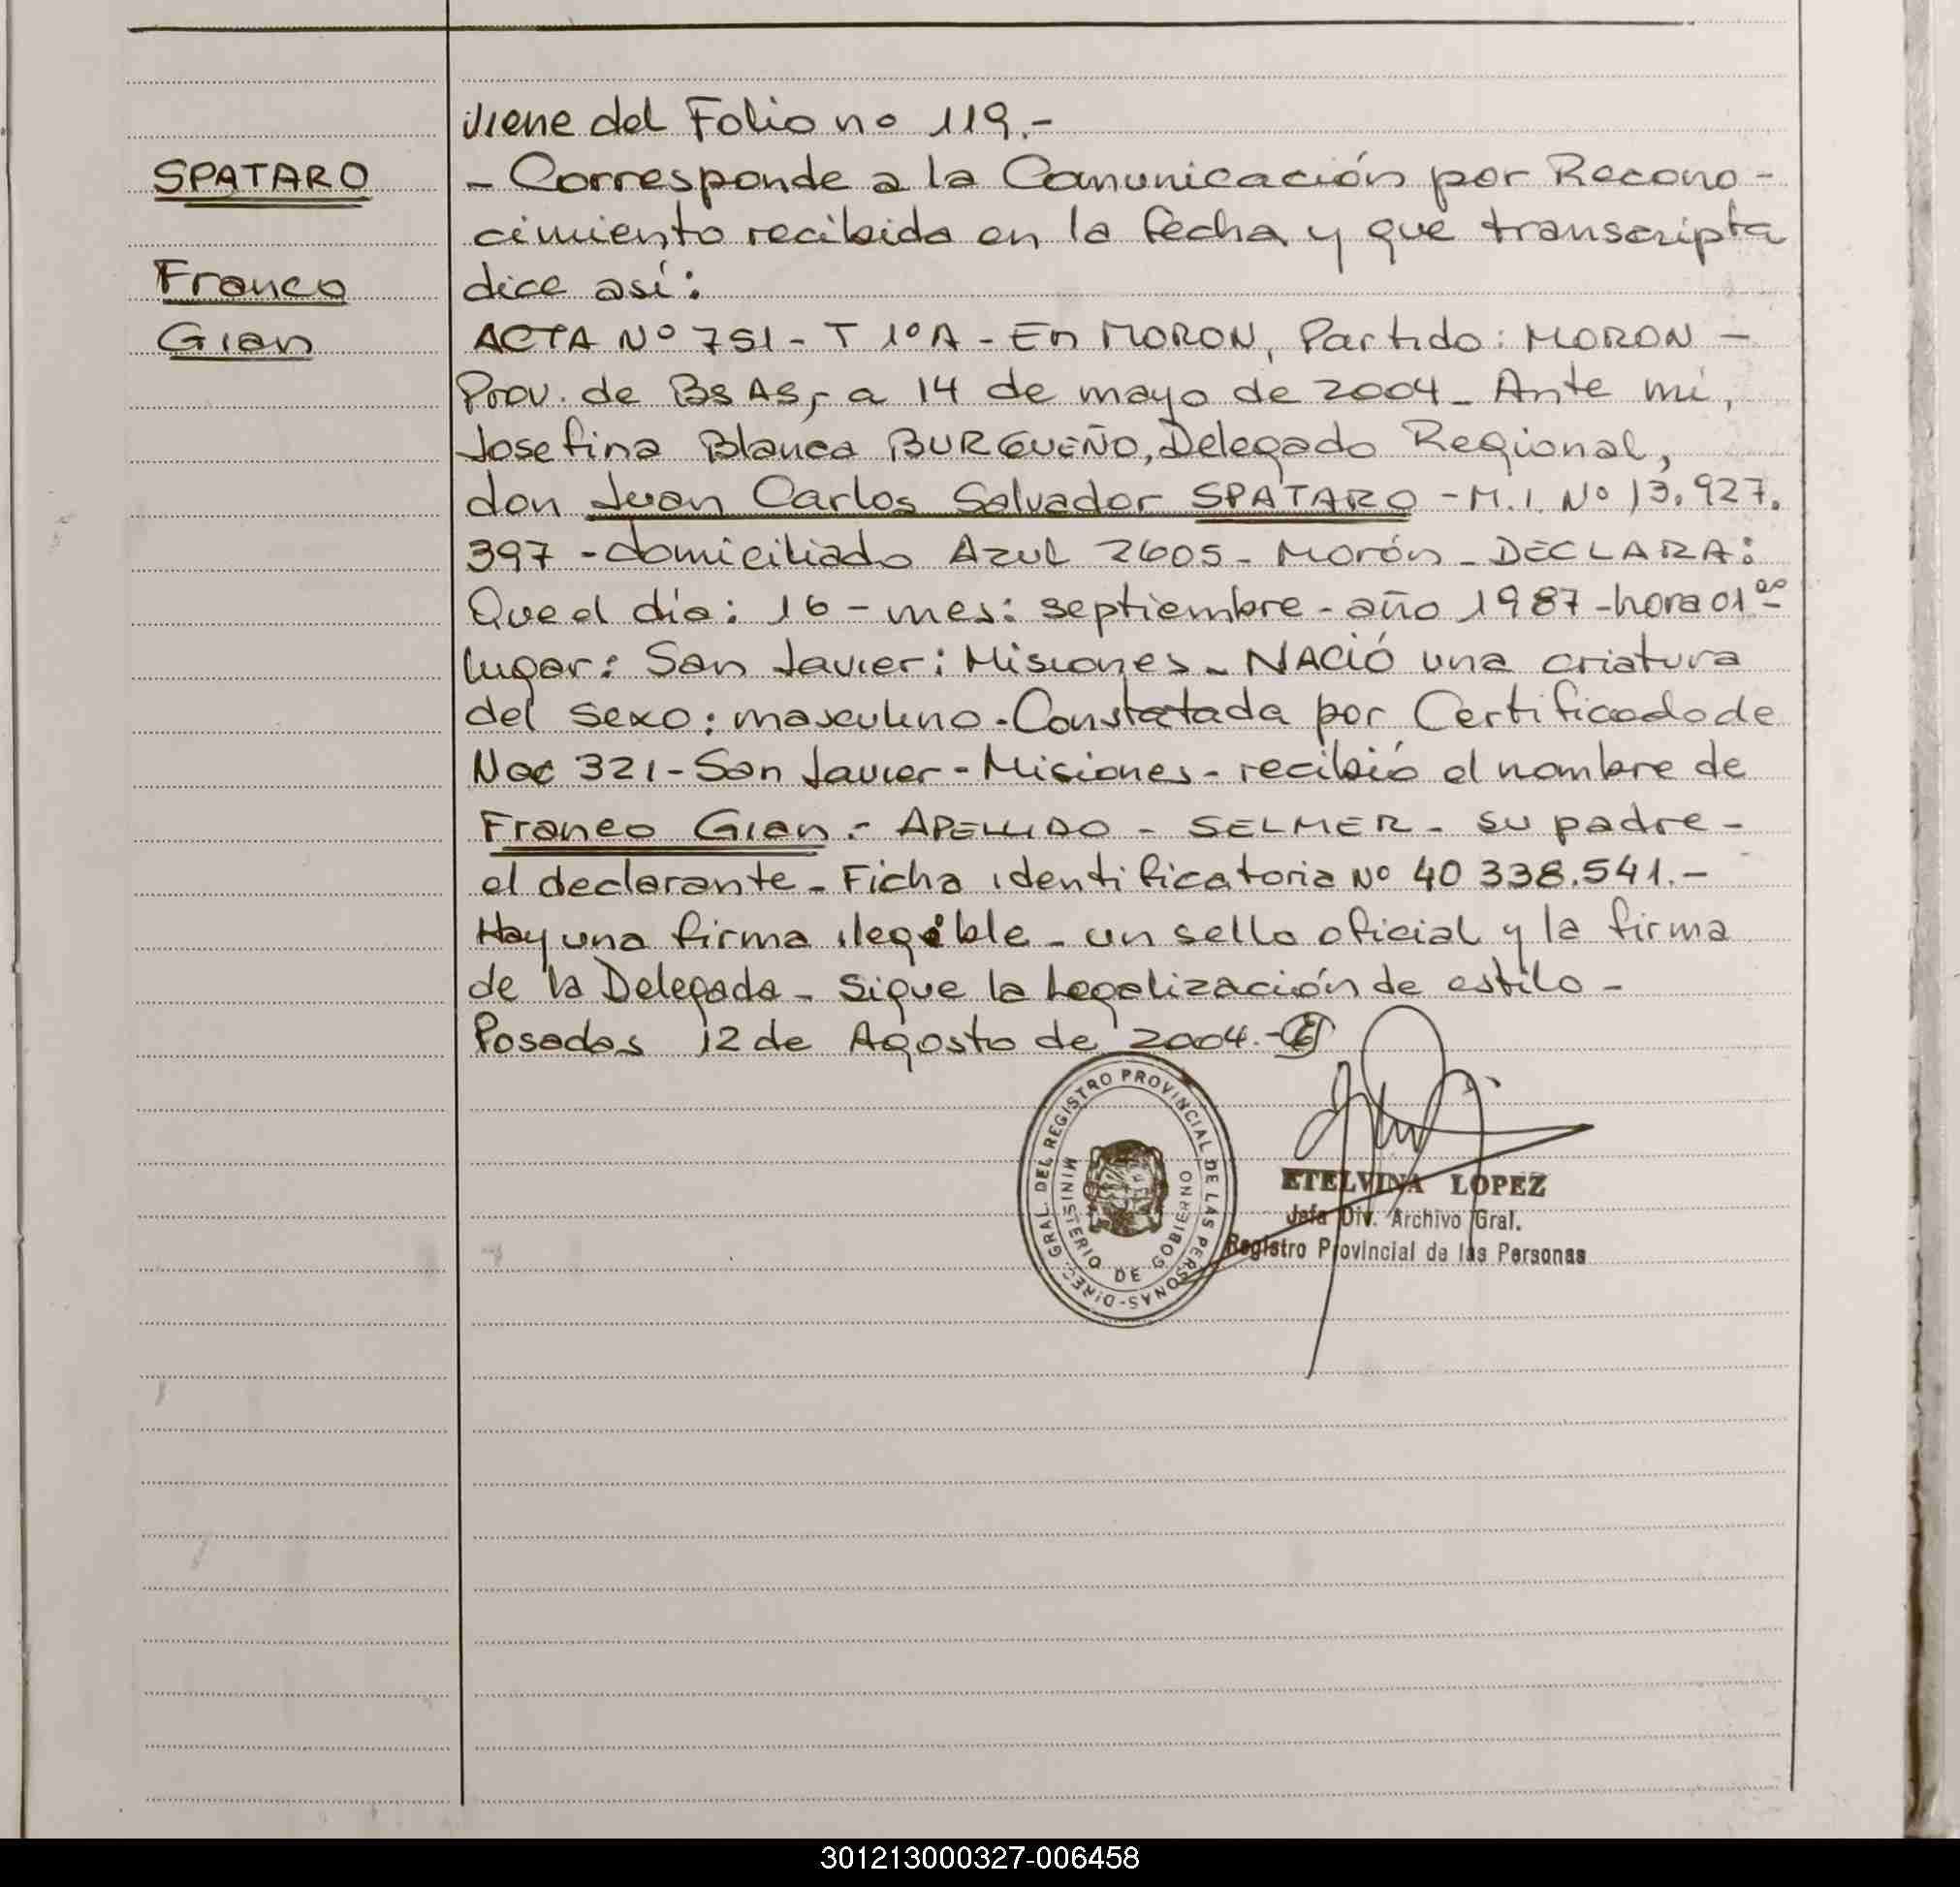 viene del Folio no 119.-
SPATARO
- Corresponde a la Comunicación por Recono-
cimiento recibida en la fecha y que transcripta
Franco
dice así:
Gian
ACTA Nº 751 - T 1º A - En MORON, Partido: MORON -
Prov. de Bs AS, - a 14 de mayo de 2004 - Ante mi,
Josefina Blanca BURGUEÑO, Delegado Regional,
don Juan Carlos Salvador SPATARO - M.I. Nº 13.927.
397 - domiciliado Azul 2605 - Morón - DECLARA:
Que el día: 16 - mes: septiembre - año 1987 - hora 01 00
lugar: San Javier: Misiones - NACIÓ una criatura
del sexo: masculino. Constatada por Certificado de
Nac 321 - San Javier - Misiones - recibió el nombre de
Franco Gian - APELLIDO - SELMER - su padre -
el declarante - Ficha identificatoria Nº 40 338.541.-
Hay una firma ilegible - un sello oficial y la firma
de la Delegada - Sigue la Legalización de estilo -
Posadas 12 de Agosto de 2004.-
DIREC. GRAL. DEL REGISTRO PROVINCIAL DE LAS PERSONAS-
MINISTERIO DE GOBIERNO
ETELVINA LOPEZ
Jefa Div. Archivo Gral.
Registro Provincial de las Personas
301213000327-006458